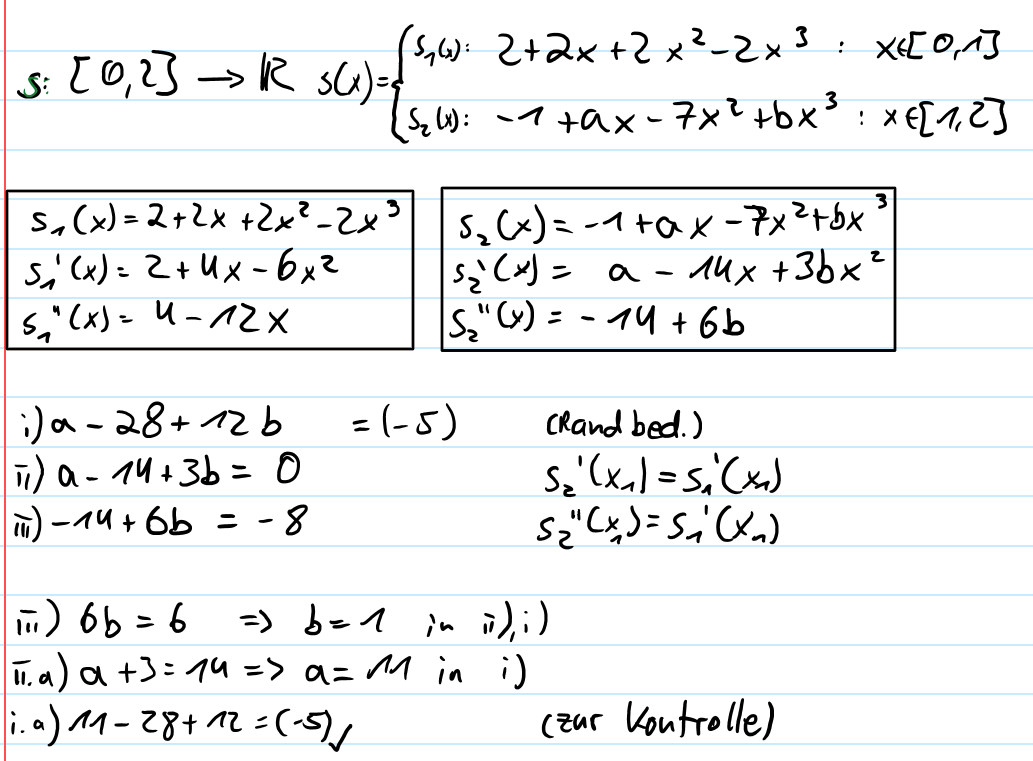 s: [0,2] → ℝ s(x)= { s₁(x): 2+2x+2x²-2x³ : x∈[0,1]
s₂(x): -1+ax-7x²+bx³ : x∈[1,2]
s₁(x)=2+2x+2x²-2x³
s₁'(x)=2+4x-6x²
s₁''(x)=4-12x
s₂(x)=-1+ax-7x²+bx³
s₂'(x)= a-14x+3bx²
s₂''(x)=-14+6b
i) a-28+12b =(-5) (Randbed.)
ii) a-14+3b= 0 s₂'(x₁)=s₁'(x₁)
iii) -14+6b = -8 s₂''(x₁)=s₁'(x₁)
iii) 6b=6 => b=1 in ii),i)
ii.a) a+3=14 => a=11 in i)
i.a) 11-28+12=(-5)✓ (zur Kontrolle)